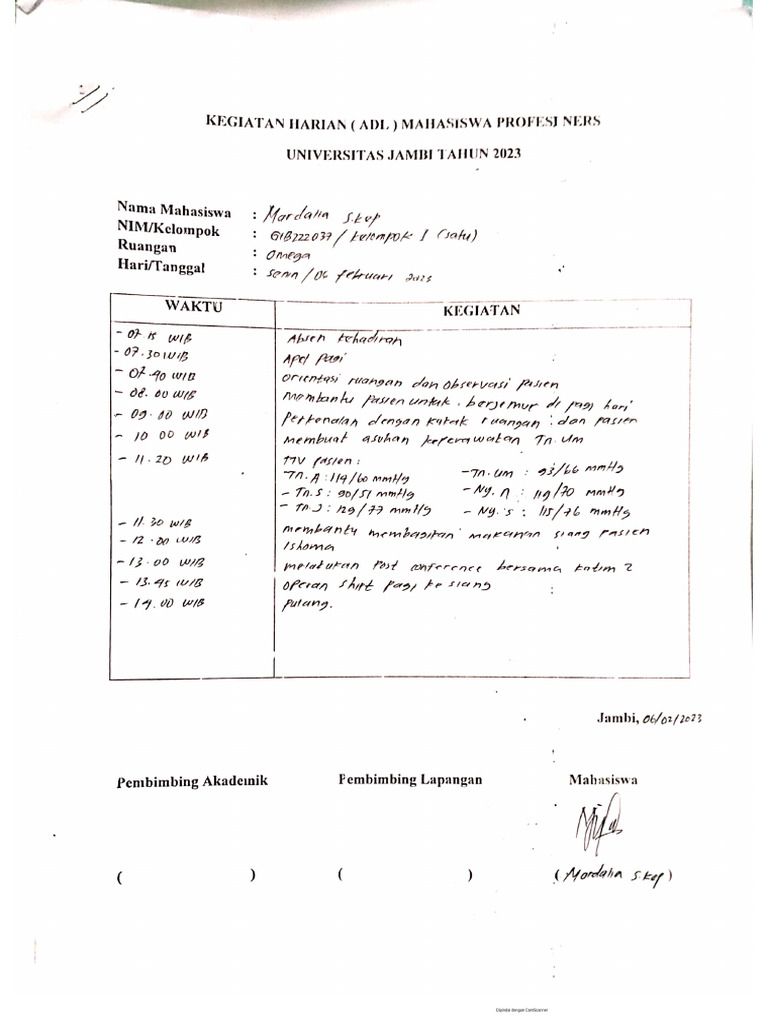 KEGIATAN HARIAN ( ADL ) MAHASISWA PROFESI NERS
UNIVERSITAS JAMBI TAHUN 2023
Nama Mahasiswa : Mardalia S.Kep
NIM/Kelompok : G1B222037 / Kelompok 1 (satu)
Ruangan : Omega
Hari/Tanggal : Senin / 06 Februari 2023
WAKTU KEGIATAN
- 07.15 WIB Absen kehadiran
- 07.30 WIB Apel pagi
- 07.40 WIB Orientasi ruangan dan observasi pasien
- 08.00 WIB Membantu pasien untuk berjemur di pagi hari
- 09.00 WIB Perkenalan dengan kakak ruangan dan pasien
- 10 00 WIB membuat asuhan keperawatan Tn.Um
- 11.20 WIB TTV pasien :
Tn.A : 119/60 mmHg - Tn.Um : 93/66 mmHg
- Tn.S : 90/51 mmHg - Ny.N : 119/70 mmHg
- Tn.J : 129/77 mmHg - Ny.S : 115/76 mmHg
- 11.30 WIB membantu membagikan makanan siang pasien
- 12.00 WIB Ishoma
- 13.00 WIB melakukan Post conference bersama katim 2
- 13.45 WIB Operan shift pagi ke siang
- 14.00 WIB pulang.
Jambi, 06/02/2023
Pembimbing Akademik Pembimbing Lapangan Mahasiswa
( ) ( ) ( Mardalia S.Kep )
Dipindai dengan CamScanner